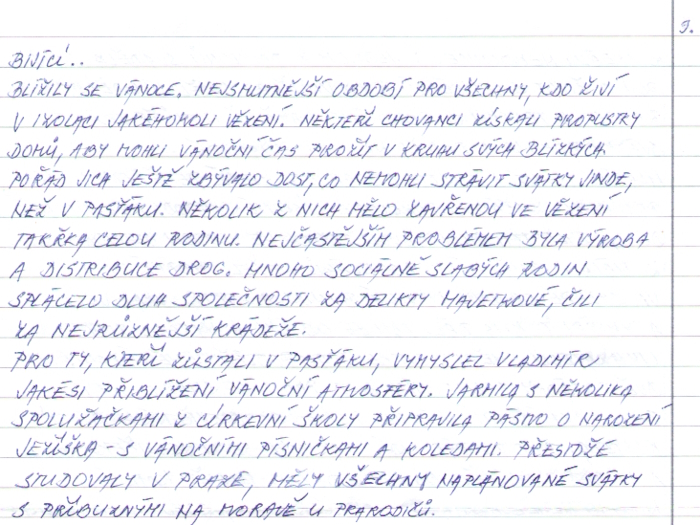 9.
BIJÍCÍ..
BLÍŽILY SE VÁNOCE. NEJSMUTNĚJŠÍ OBDOBÍ PRO VŠECHNY, KDO ŽIJÍ
V IZOLACI JAKÉHOKOLI VĚZENÍ. NĚKTEŘÍ CHOVANCI ZÍSKALI PROPUSTKY
DOMŮ, ABY MOHLI VÁNOČNÍ ČAS PROŽÍT V KRUHU SVÝCH BLÍZKÝCH.
POŘÁD JICH JEŠTĚ ZBÝVALO DOST, CO NEMOHLI STRÁVIT SVÁTKY JINDE,
NEŽ V PASŤÁKU. NĚKOLIK Z NICH MĚLO ZAVŘENOU VE VĚZENÍ
TAKŘKA CELOU RODINU. NEJČASTĚJŠÍM PROBLÉMEM BYLA VÝROBA
A DISTRIBUCE DROG. MNOHO SOCIÁLNĚ SLABÝCH RODIN
SPLÁCELO DLUH SPOLEČNOSTI ZA DELIKTY MAJETKOVÉ, ČILI
ZA NEJRŮZNĚJŠÍ KRÁDEŽE.
PRO TY, KTEŘÍ ZŮSTALI V PASŤÁKU, VYMYSLEL VLADIMÍR
JAKÉSI PŘIBLÍŽENÍ VÁNOČNÍ ATMOSFÉRY. JARMILA S NĚKOLIKA
SPOLUŽAČKAMI Z CÍRKEVNÍ ŠKOLY PŘIPRAVILA PÁSMO O NAROZENÍ
JEŽÍŠKA - S VÁNOČNÍMI PÍSNIČKAMI A KOLEDAMI. PŘESTOŽE
STUDOVALY V PRAZE, MĚLY VŠECHNY NAPLÁNOVANÉ SVÁTKY
S PŘÍBUZNÝMI NA MORAVĚ U PRARODIČŮ.